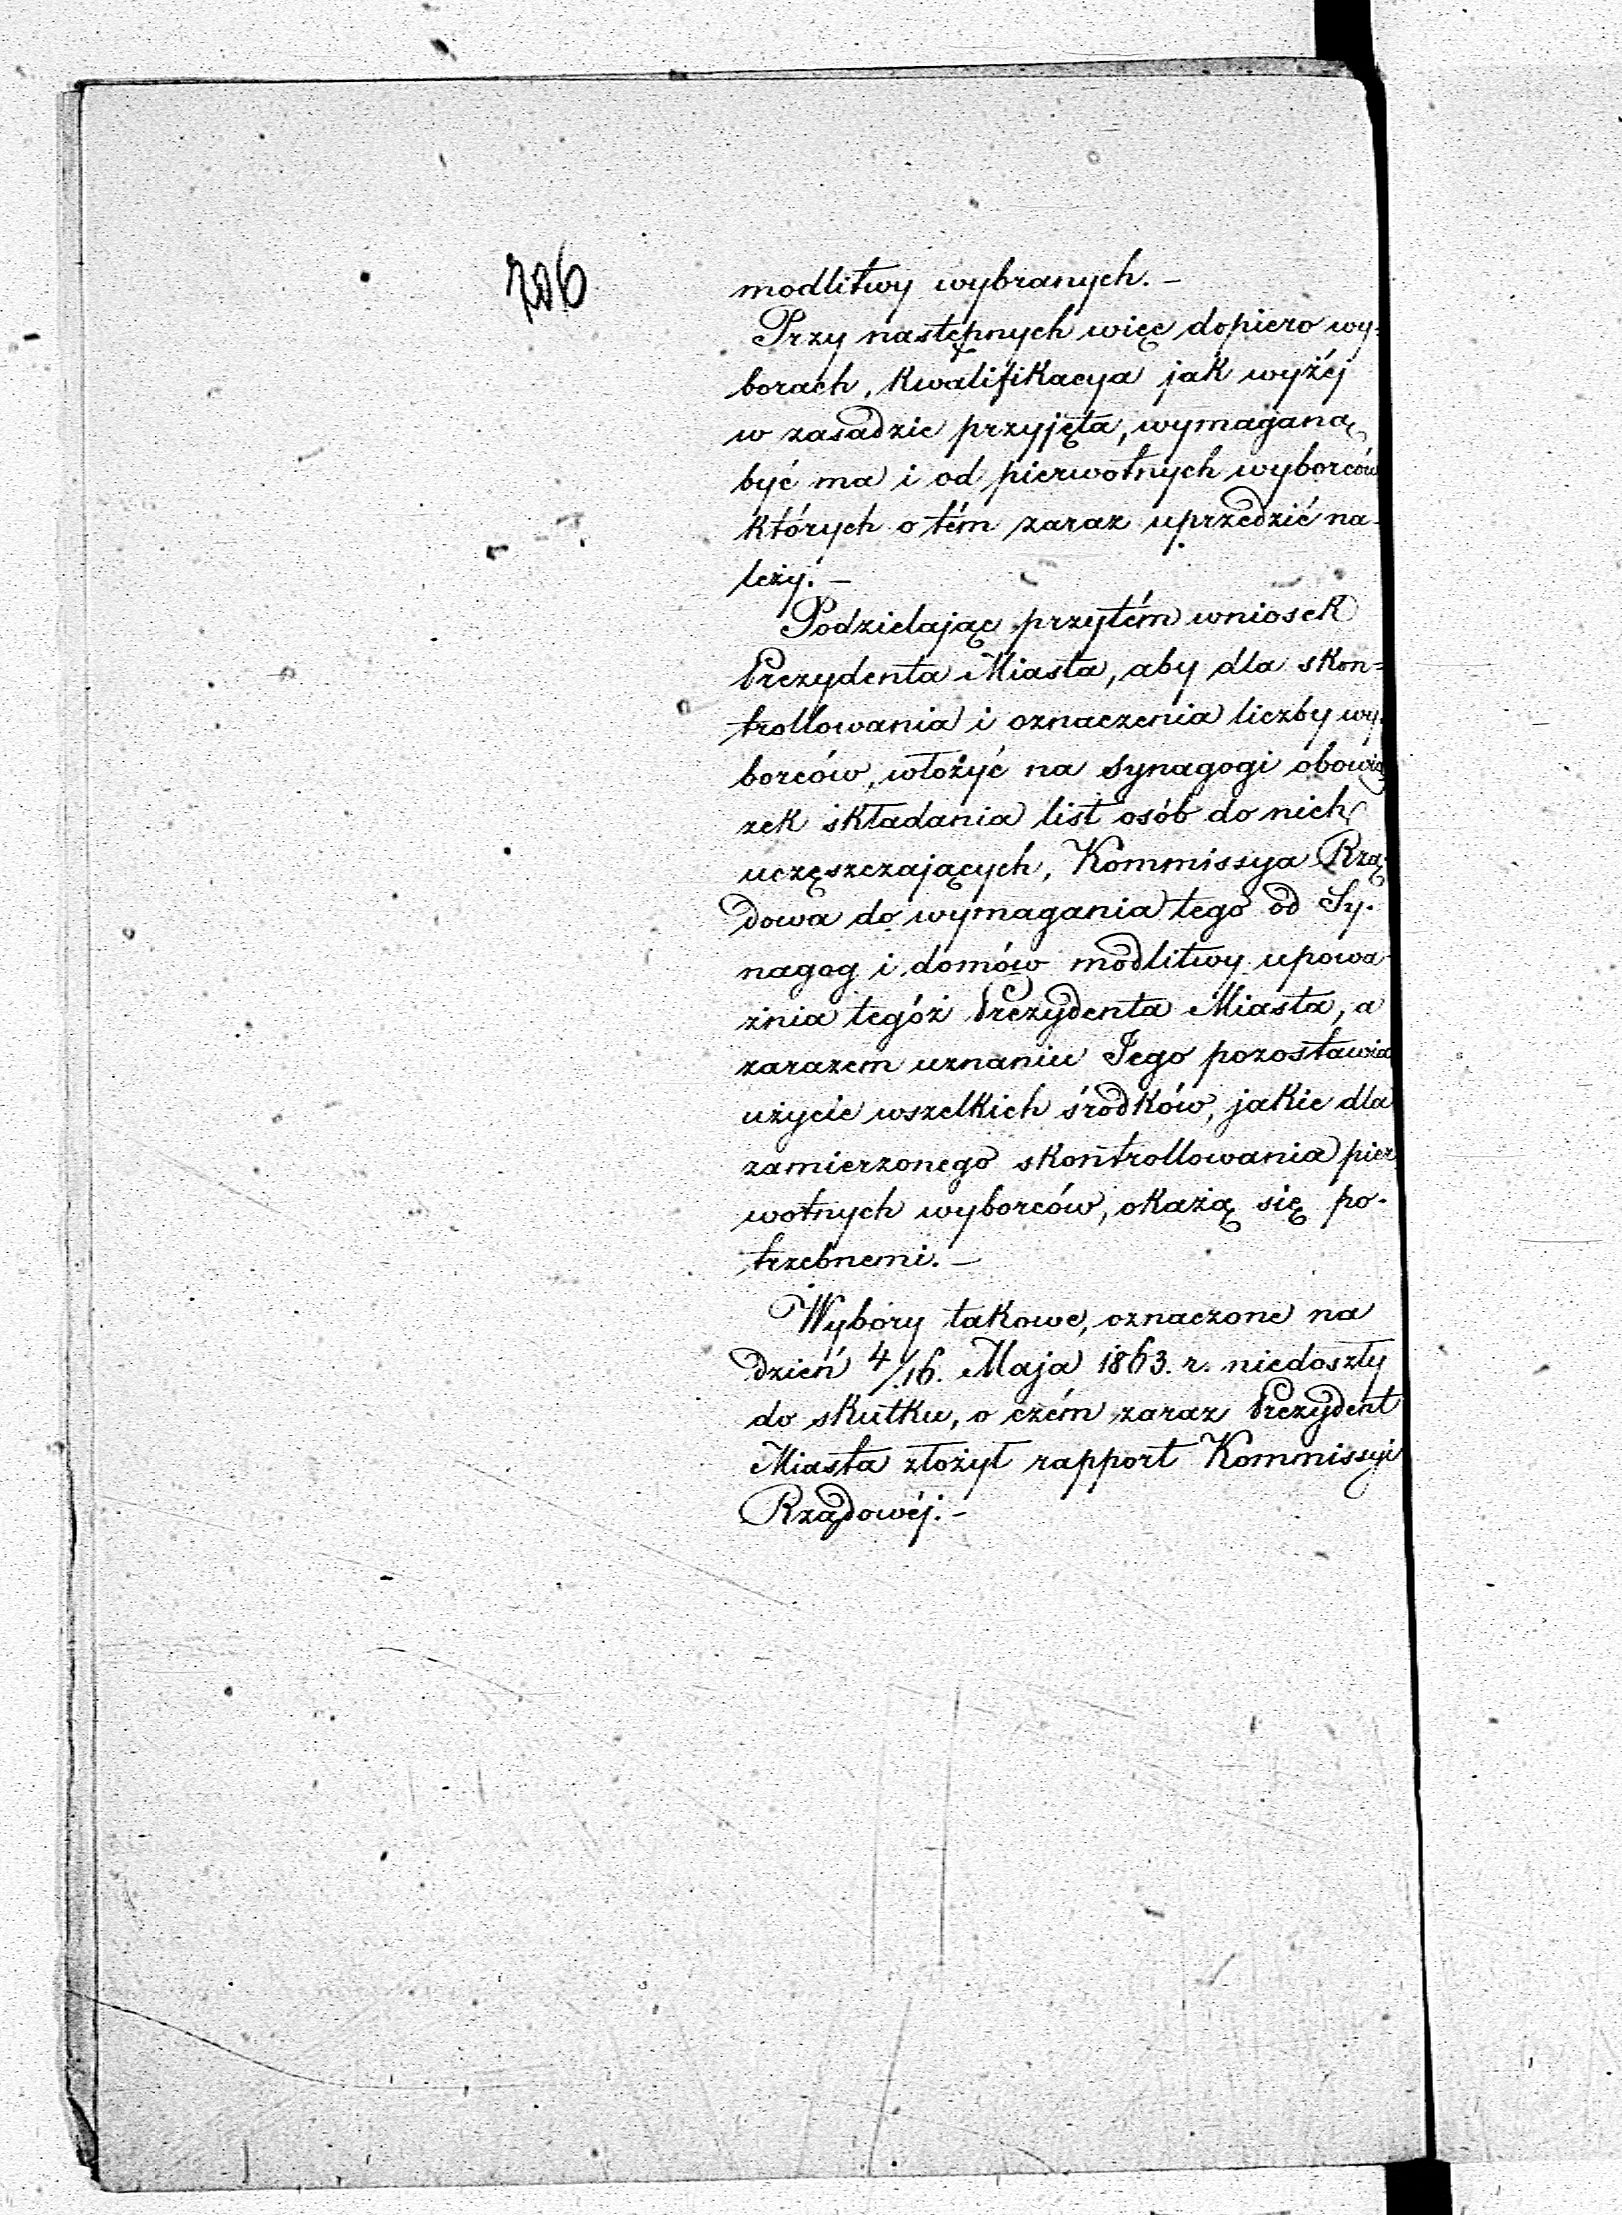 206
modlitwy wybranych. –
Przy następnych więc dopiero wy-
borach, kwalifikacya jak wyżéj
w zasadzie przyjęta, wymaganą
być ma i od pierwotnych wyborców
których o tém zaraz uprzedzić na-
leży. –
Podzielając przytém wniosek
Prezydenta Miasta, aby dla skon=
trollowania i oznaczenia liczby wy-
borców, włożyć na Synagogi obowią
zek składania list osób do nich
uczęszczających, Kommissya Rzą-
dowa do wymagania tego od Sy-
nagog i domów modlitwy upowa-
żnia tegóż Prezydenta Miasta, a
zarazem uznaniu Jego pozostawia
użycie wszelkich środków, jakie dla
zamierzonego skontrollowania pier
wotnych wyborców, okażą się po-
trzebnemi. –
Wybory takowe, oznaczone na
dzień 4/16. Maja 1863. r. niedoszły
do skutku, o czém zaraz Prezydent
Miasta złożył rapport Kommissyi
Rządowéj. –